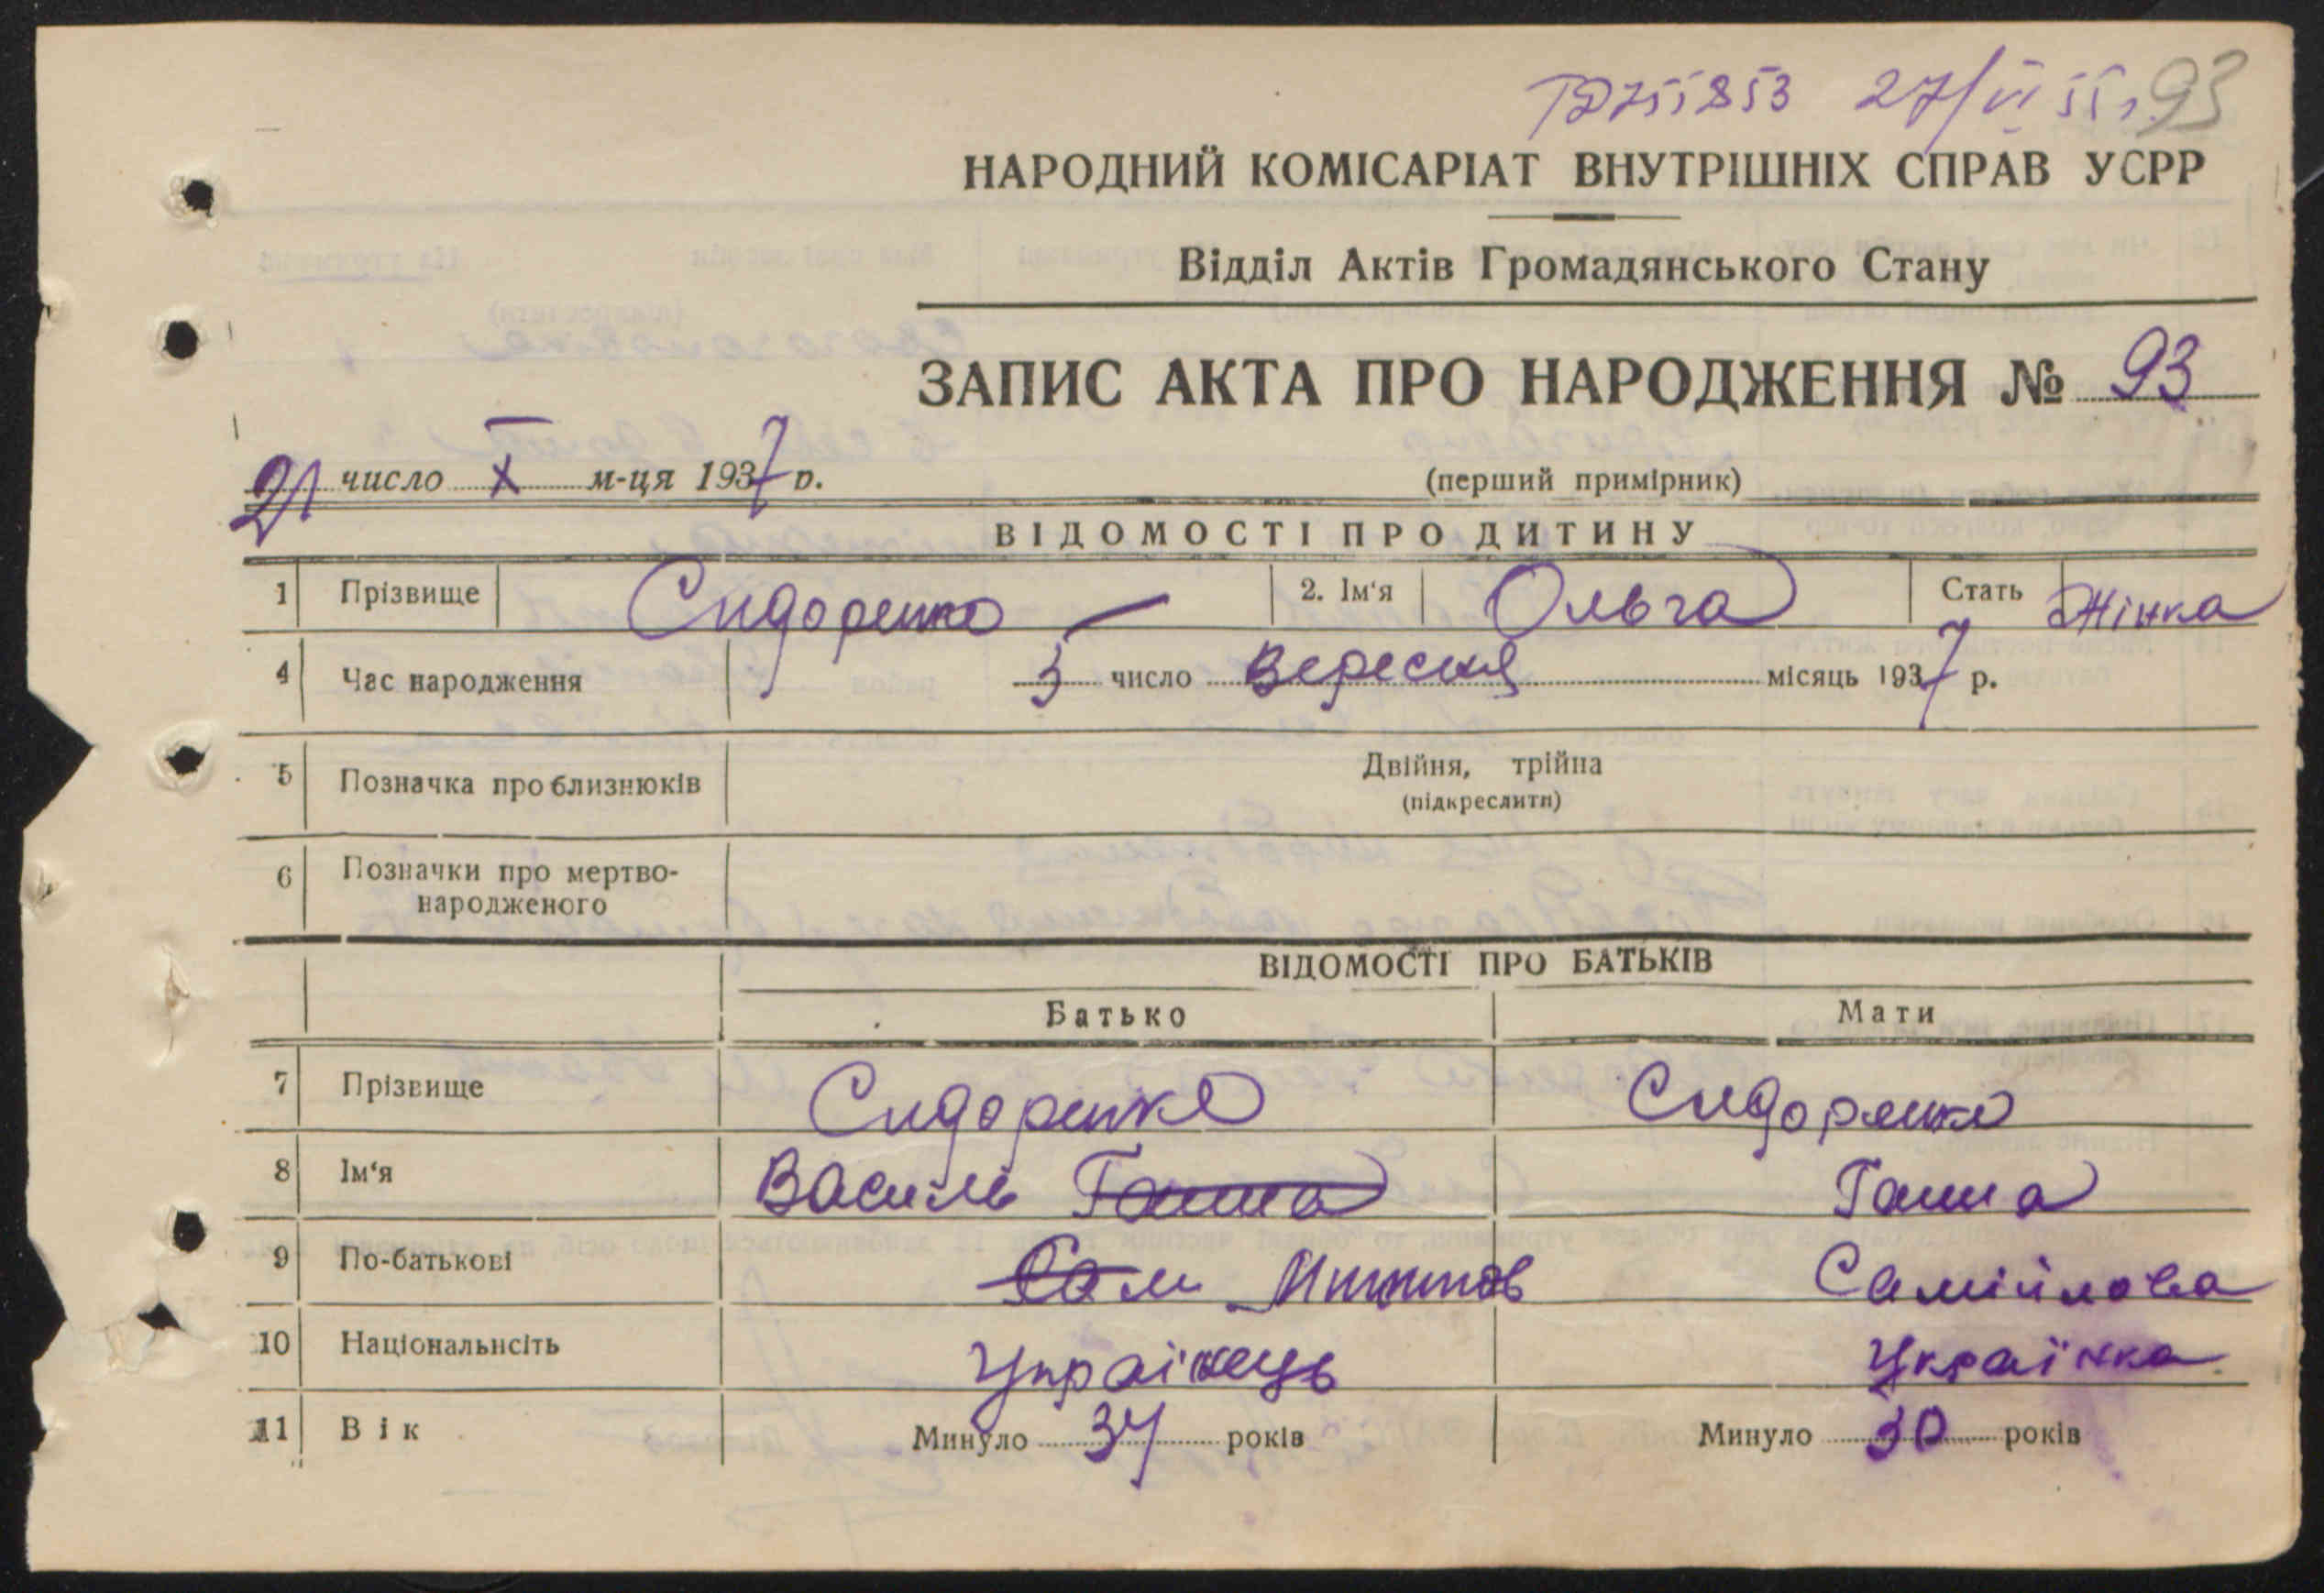 27/VI 55 г. 93
НАРОДНИЙ КОМІСАРІАТ ВНУТРІШНІХ СПРАВ УСРР
Відділ Актів Громадянського Стану
ЗАПИС АКТА ПРО НАРОДЖЕННЯ № 93
21 число X м-ця 1937 р.
(перший примірник)
ВІДОМОСТІ ПРО ДИТИНУ
1 Прізвище Сидоренко 2. Ім'я Ольга Стать Жінка
4 Час народження 5 число Вересня місяць 1937 р.
5 Позначка про близнюків Двійня, трійна
(підкреслити)
6 Позначки про мертво-
народженого
ВІДОМОСТІ ПРО БАТЬКІВ
Батько Мати
7 Прізвище Сидоренко Сидоренко
8 Ім'я Василь Ганна Ганна
9 По-батькові Сам Самійлова
10 Національнсіть Українець Українка
11 Вік Минуло 34 років Минуло 30 років